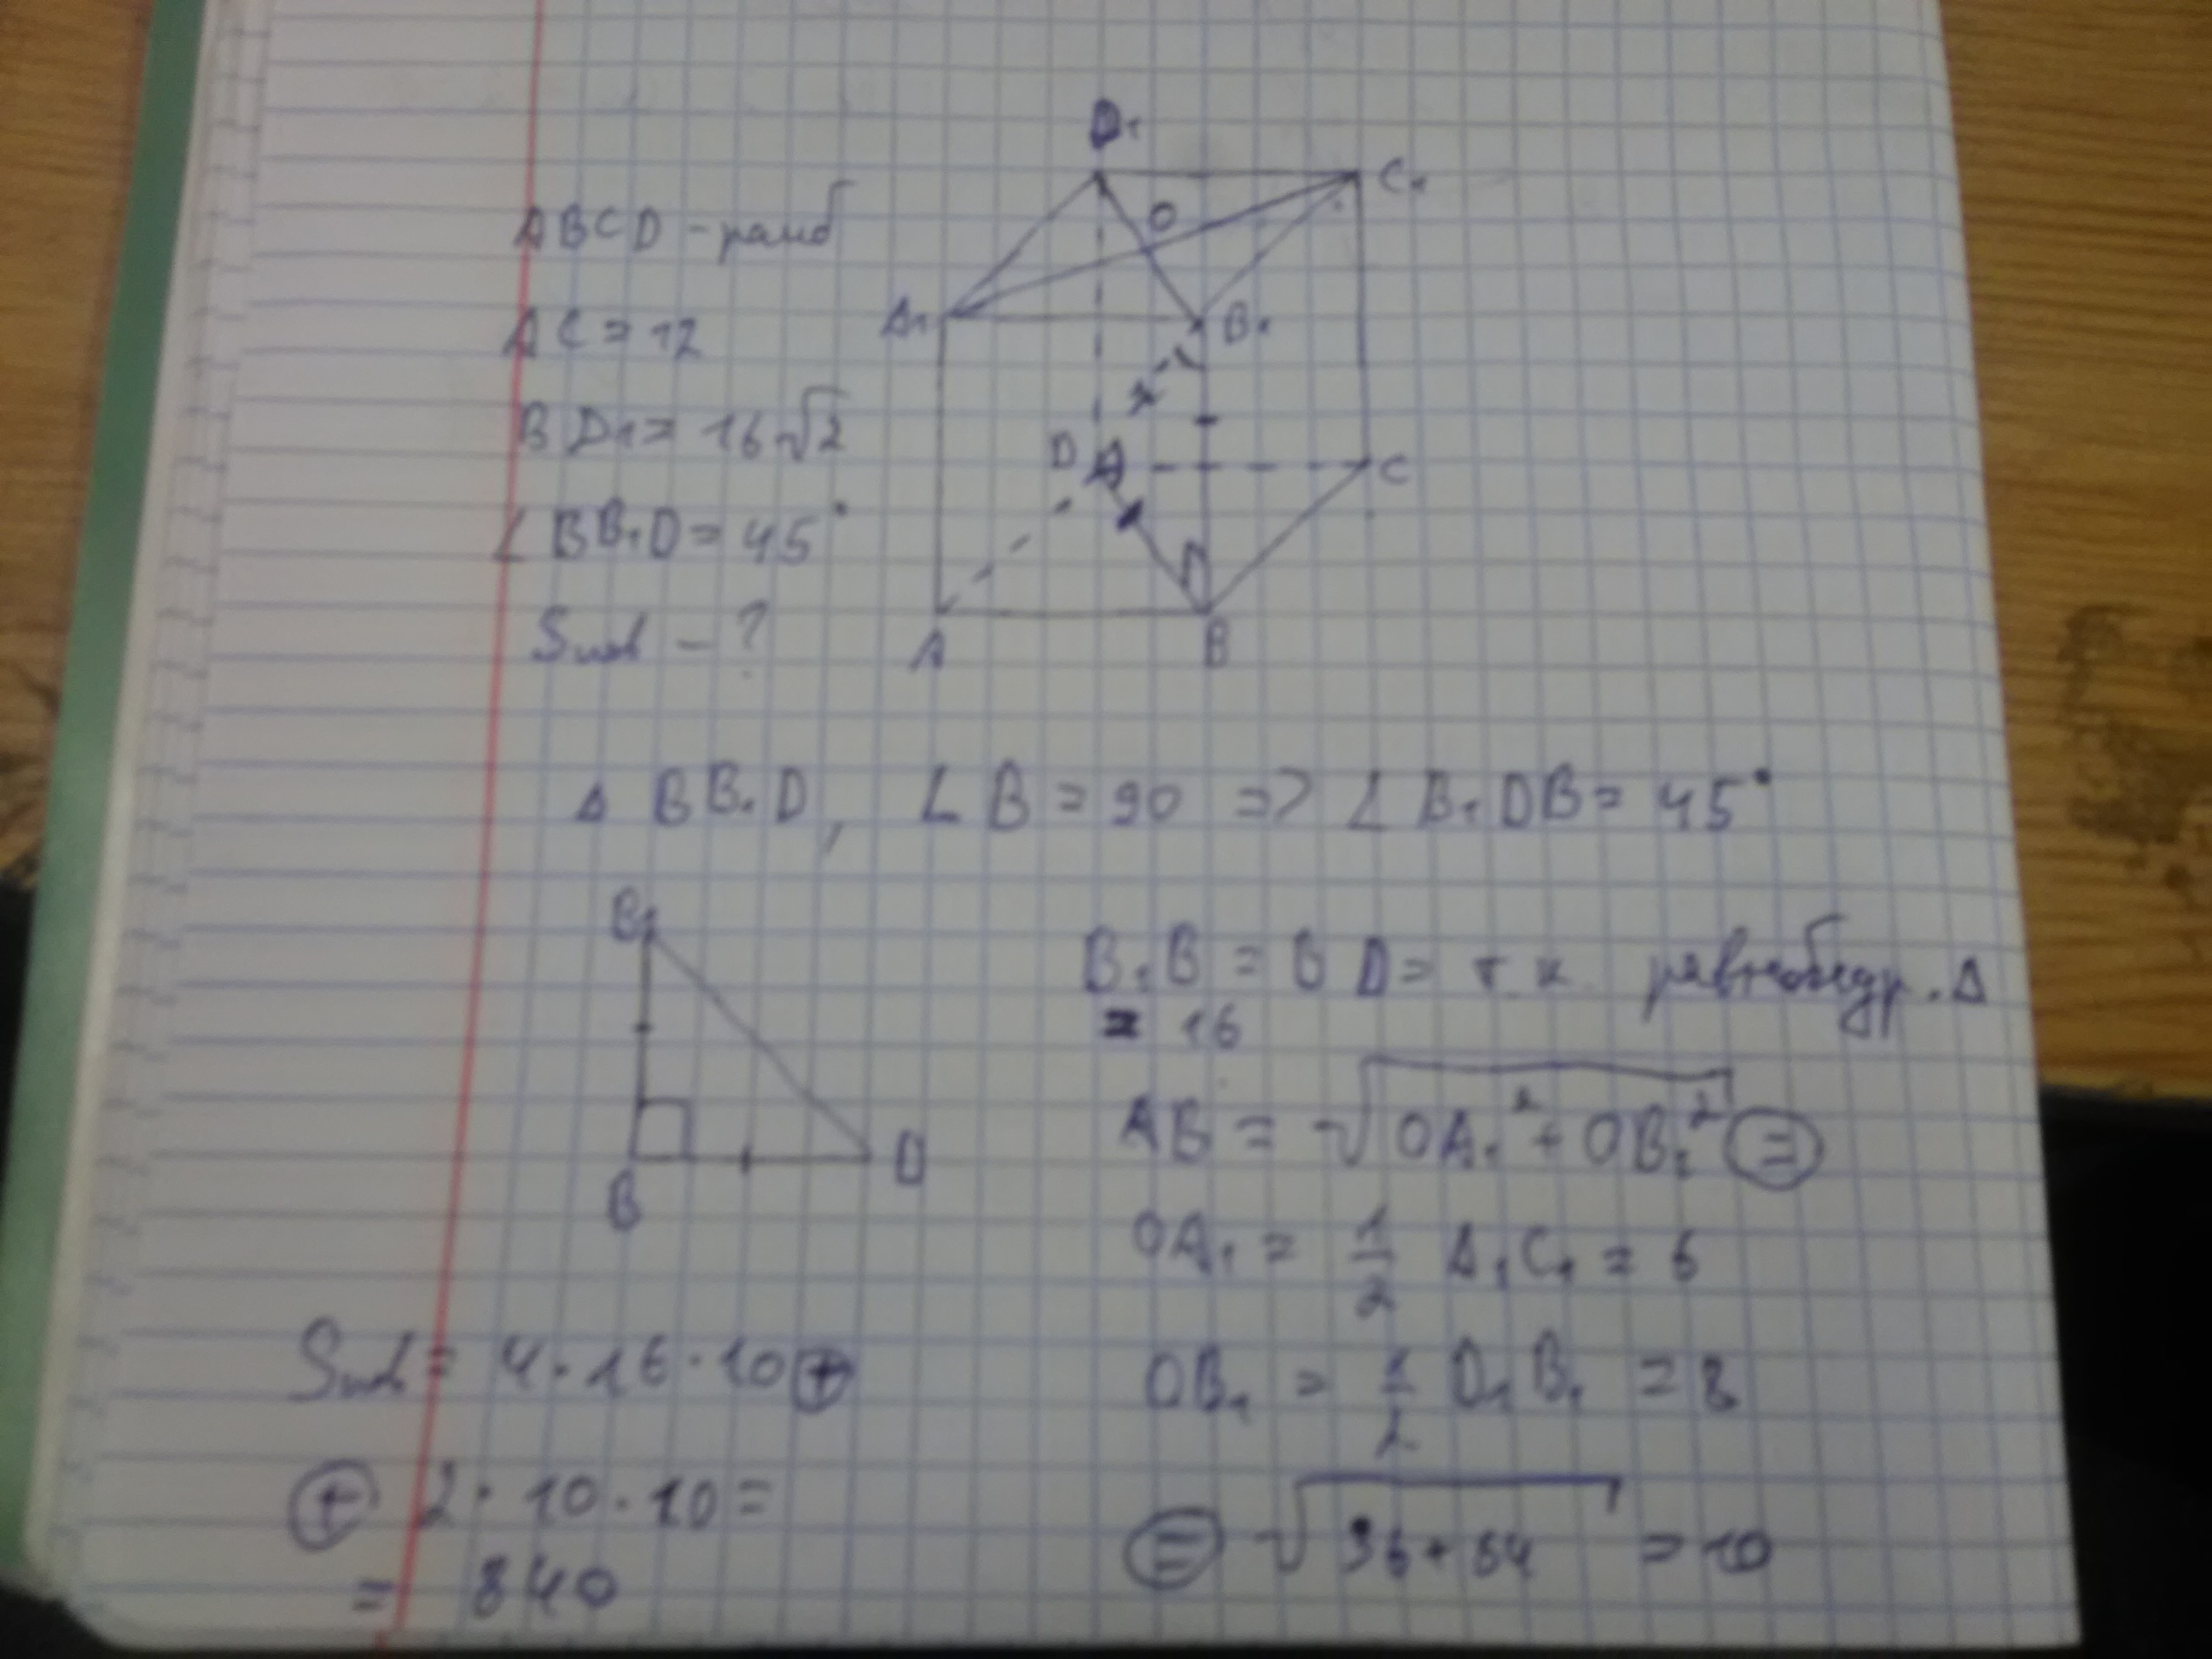 ABCD - ромб
AC = 12
BD₁ = 16√2
∠BB₁D = 45°
Sпов - ?
D₁
C₁
O
A₁
B₁
x
D
C
A
B
Δ BB₁D, ∠B = 90 => ∠B₁DB = 45°
B₁
B
D
B₁B = BD = т.к. равнобедр. Δ
= 16
AB = √OA₁² + OB₁² =
OA₁ = 1/2 A₁C₁ = 6
OB₁ = 1/2 D₁B₁ = 8
= √36+64 = 10
Sпов = 4·16·10 +
+ 2·10·10 =
= 840